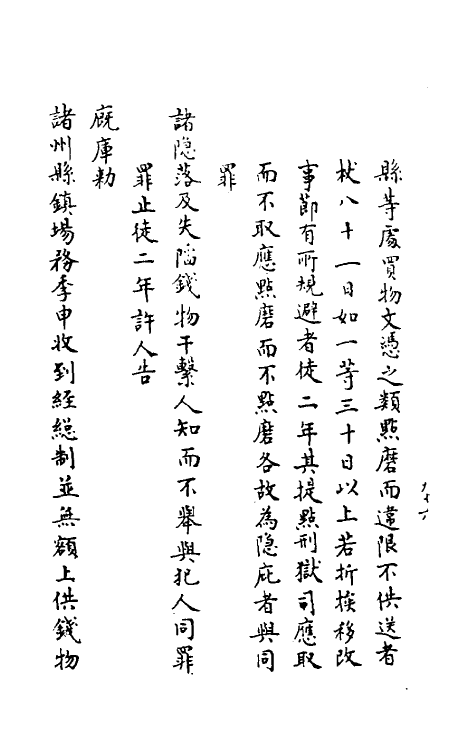 縣等處買物文憑之類點磨而違限不供送者
杖八十一日如一等三十日以上若折換移改
事節有所規避者徒二年其提點刑獄司應取
而不取應點磨而不點磨各故為隐庇者與同
罪
諸隐落及失陷錢物干繫人知而不舉與犯人同罪
罪止徒二年許人告
厩庫勑
諸州縣鎮場務季申收到経緫制並無額上供錢物